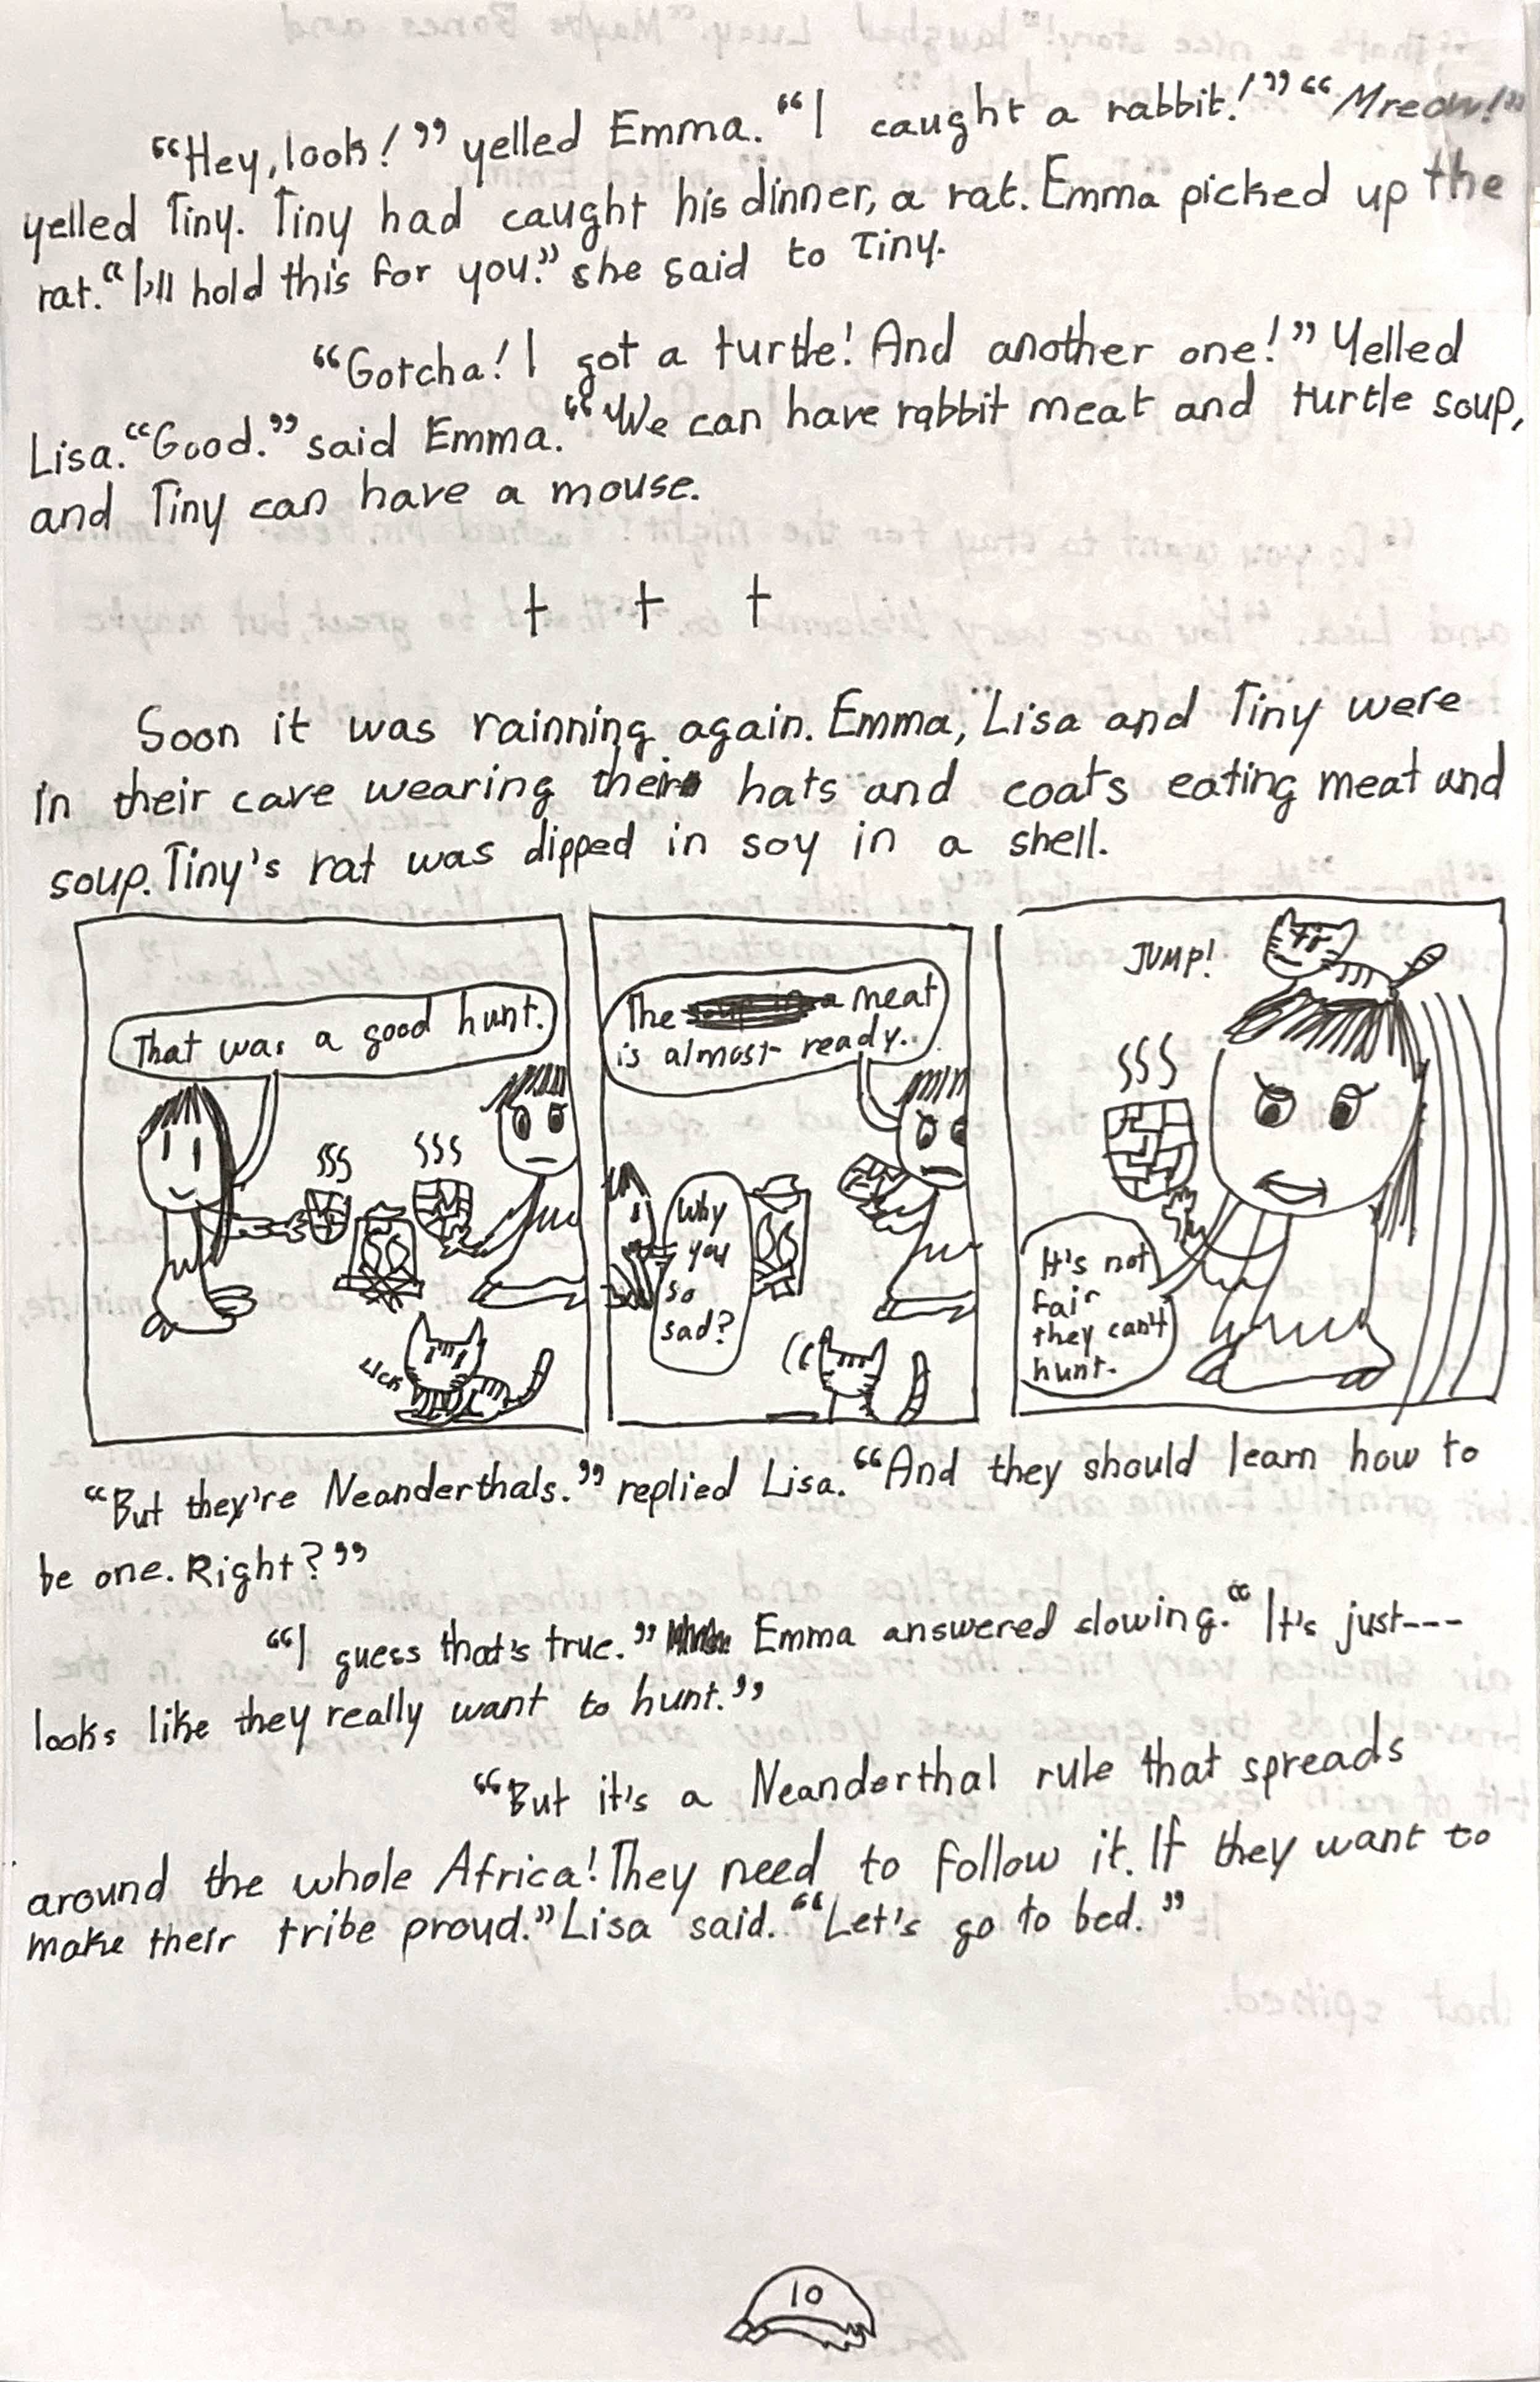 “Hey, look!” yelled Emma. “I caught a rabbit!” “Mreow!”
yelled Tiny. Tiny had caught his dinner, a rat. Emma picked up the
rat. “I'll hold this for you.” she said to Tiny.
“Gotcha! I got a turtle! And another one!” Yelled
Lisa. “Good.” said Emma. “We can have rabbit meat and turtle soup,
and Tiny can have a mouse.
† † †
Soon it was rainning again. Emma, Lisa and Tiny were
in their cave wearing their hats and coats eating meat and
soup. Tiny's rat was dipped in soy in a shell.
That was a good hunt.
LICK
The meat
is almost ready..
Why
you
so
sad?
JUMP!
It's not
fair
they can't
hunt.
“But they're Neanderthals.” replied Lisa. “And they should learn how to
be one. Right?”
“I guess that's true.” Emma answered slowing. “It's just---
looks like they really want to hunt.”
“But it's a Neanderthal rule that spreads
around the whole Africa! They need to follow it. If they want to
make their tribe proud.” Lisa said. “Let's go to bed.”
10